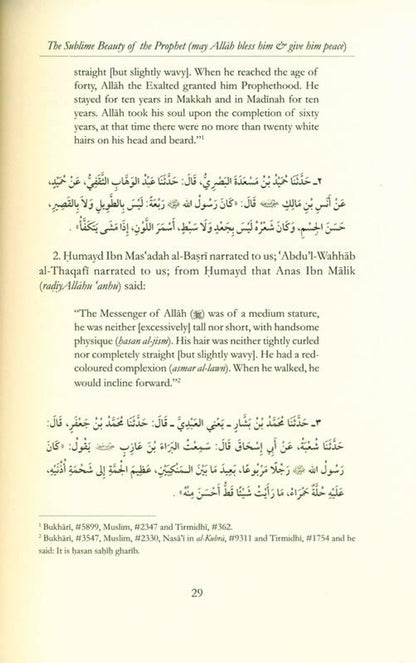 The Sublime Beauty of the Prophet (may Allāh bless him & give him peace)
straight [but slightly wavy]. When he reached the age of
forty, Allāh the Exalted granted him Prophethood. He
stayed for ten years in Makkah and in Madīnah for ten
years. Allāh took his soul upon the completion of sixty
years, at that time there were no more than twenty white
hairs on his head and beard.”¹
٢ـ حَدَّثَنَا حُمَيْدُ بْنُ مَسْعَدَةَ الْبَصْرِيُّ، قَالَ: حَدَّثَنَا عَبْدُ الْوَهَّابِ الثَّقَفِيُّ، عَنْ حُمَيْدٍ،
عَنْ أَنَسِ بْنِ مَالِكٍ قَالَ: «كَانَ رَسُولُ اللهِ ﷺ رَبْعَةً: لَيْسَ بِالطَّوِيلِ وَلَا بِالْقَصِيرِ،
حَسَنَ الْجِسْمِ، وَكَانَ شَعْرُهُ لَيْسَ بِجَعْدٍ وَلَا سَبْطٍ، أَسْمَرَ اللَّوْنِ، إِذَا مَشَى يَتَكَفَّأُ».
2. Ḥumayd Ibn Mas‘adah al-Baṣrī narrated to us; ‘Abdu’l-Wahhāb
al-Thaqafī narrated to us; from Ḥumayd that Anas Ibn Mālik
(raḍiyAllāhu ‘anhu) said:
“The Messenger of Allāh (ﷺ) was of a medium stature,
he was neither [excessively] tall nor short, with handsome
physique (ḥasan al-jism). His hair was neither tightly curled
nor completely straight [but slightly wavy]. He had a red-
coloured complexion (asmar al-lawn). When he walked, he
would incline forward.”²
٣ـ حَدَّثَنَا مُحَمَّدُ بْنُ بَشَّارٍ ـ يَعْنِي الْعَبْدِيَّ ـ قَالَ: حَدَّثَنَا مُحَمَّدُ بْنُ جَعْفَرٍ، قَالَ:
حَدَّثَنَا شُعْبَةُ، عَنْ أَبِي إِسْحَاقَ قَالَ: سَمِعْتُ الْبَرَاءَ بْنَ عَازِبٍ يَقُولُ: «كَانَ
رَسُولُ اللهِ ﷺ رَجُلًا مَرْبُوعًا، بَعِيدَ مَا بَيْنَ الْمَنْكِبَيْنِ، عَظِيمَ الْجُمَّةِ إِلَى شَحْمَةِ أُذُنَيْهِ،
عَلَيْهِ حُلَّةٌ حَمْرَاءُ، مَا رَأَيْتُ شَيْئًا قَطُّ أَحْسَنَ مِنْهُ».
¹ Bukhārī, #5899, Muslim, #2347 and Tirmidhī, #362.
² Bukhārī, #3547, Muslim, #2330, Nasā’ī in al-Kubrā, #9311 and Tirmidhī, #1754 and he
said: It is ḥasan saḥīḥ gharīb.
29